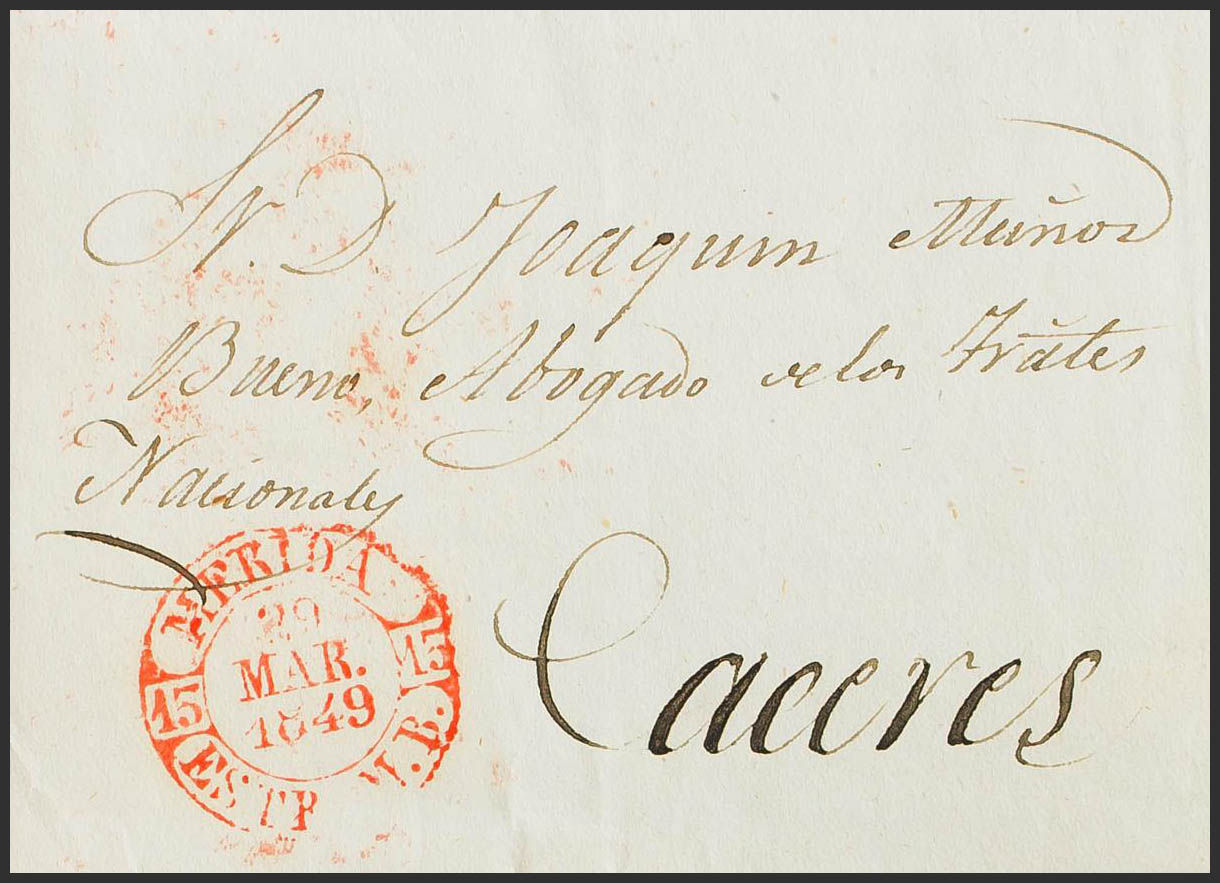 Sr. D Joaquin Muñoz
Bueno, Abogado de los Trãles
Nacionales
Caceres
MERIDA
29
MAR.
1849
15
15
ESTR M.B.